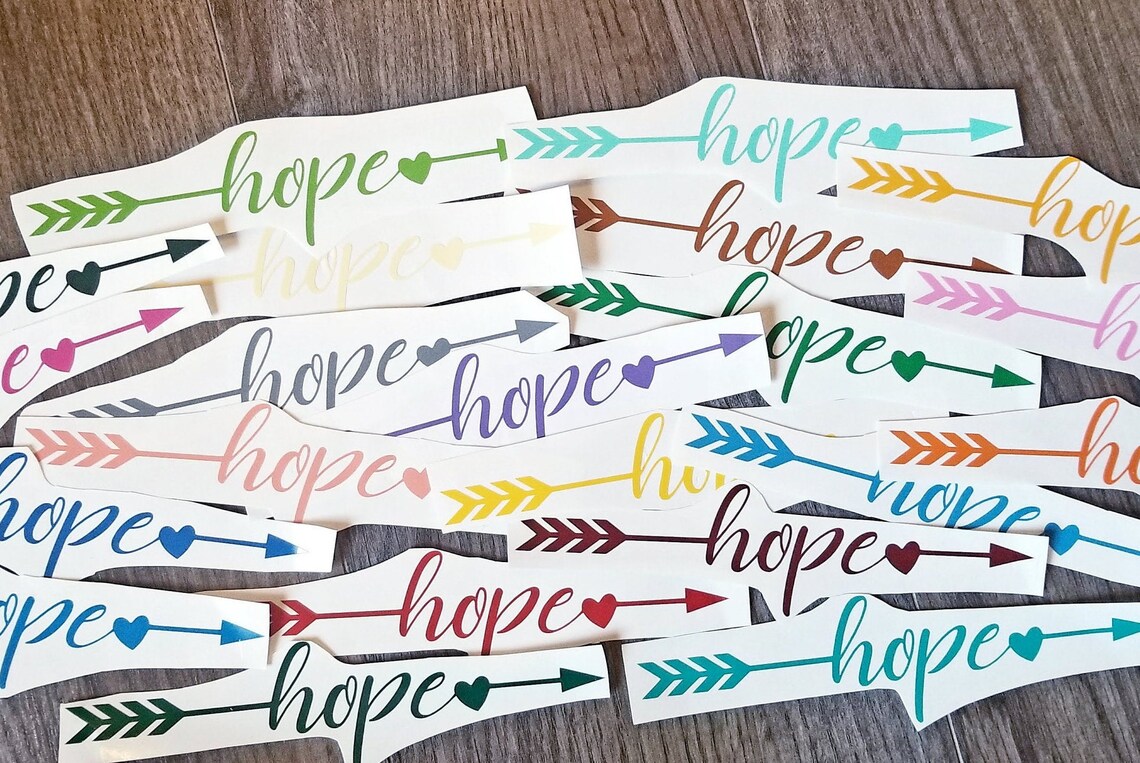 hope
hope
hop
hope
hope
pe
h
e
hope
hope
hope
hope
ho
hope
ho
hope
hope
ope
hope
hope
hope